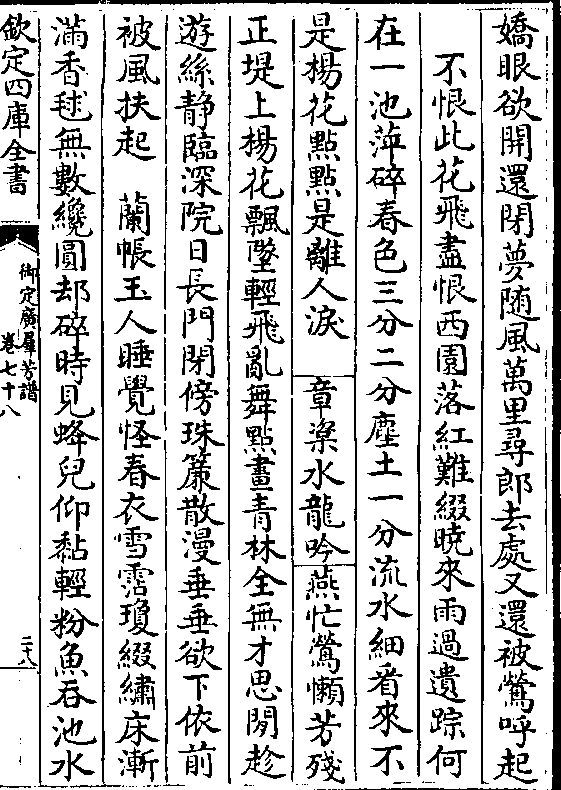 嬌眼欲開還閉夢随風萬里尋郎去處又還被鶯呼起
不恨此花飛盡恨西園落紅難綴曉來雨過遺踪何
在一池萍碎春色三分二分塵土一分流水細看來不
是楊花點點是離人淚　章楶水龍吟燕忙鶯懶芳殘
正堤上楊花飄墜輕飛亂舞點畫青林全無才思閒趁
遊絲静臨深院日長門閉傍珠簾散漫垂垂欲下依前
被風扶起　蘭帳玉人睡覺怪春衣雪霑瓊綴繡床漸
滿香毬無數纔圓却碎時見蜂兒仰黏輕粉魚吞池水
欽定四庫全書
御定廣羣芳譜
卷七十八
二十八